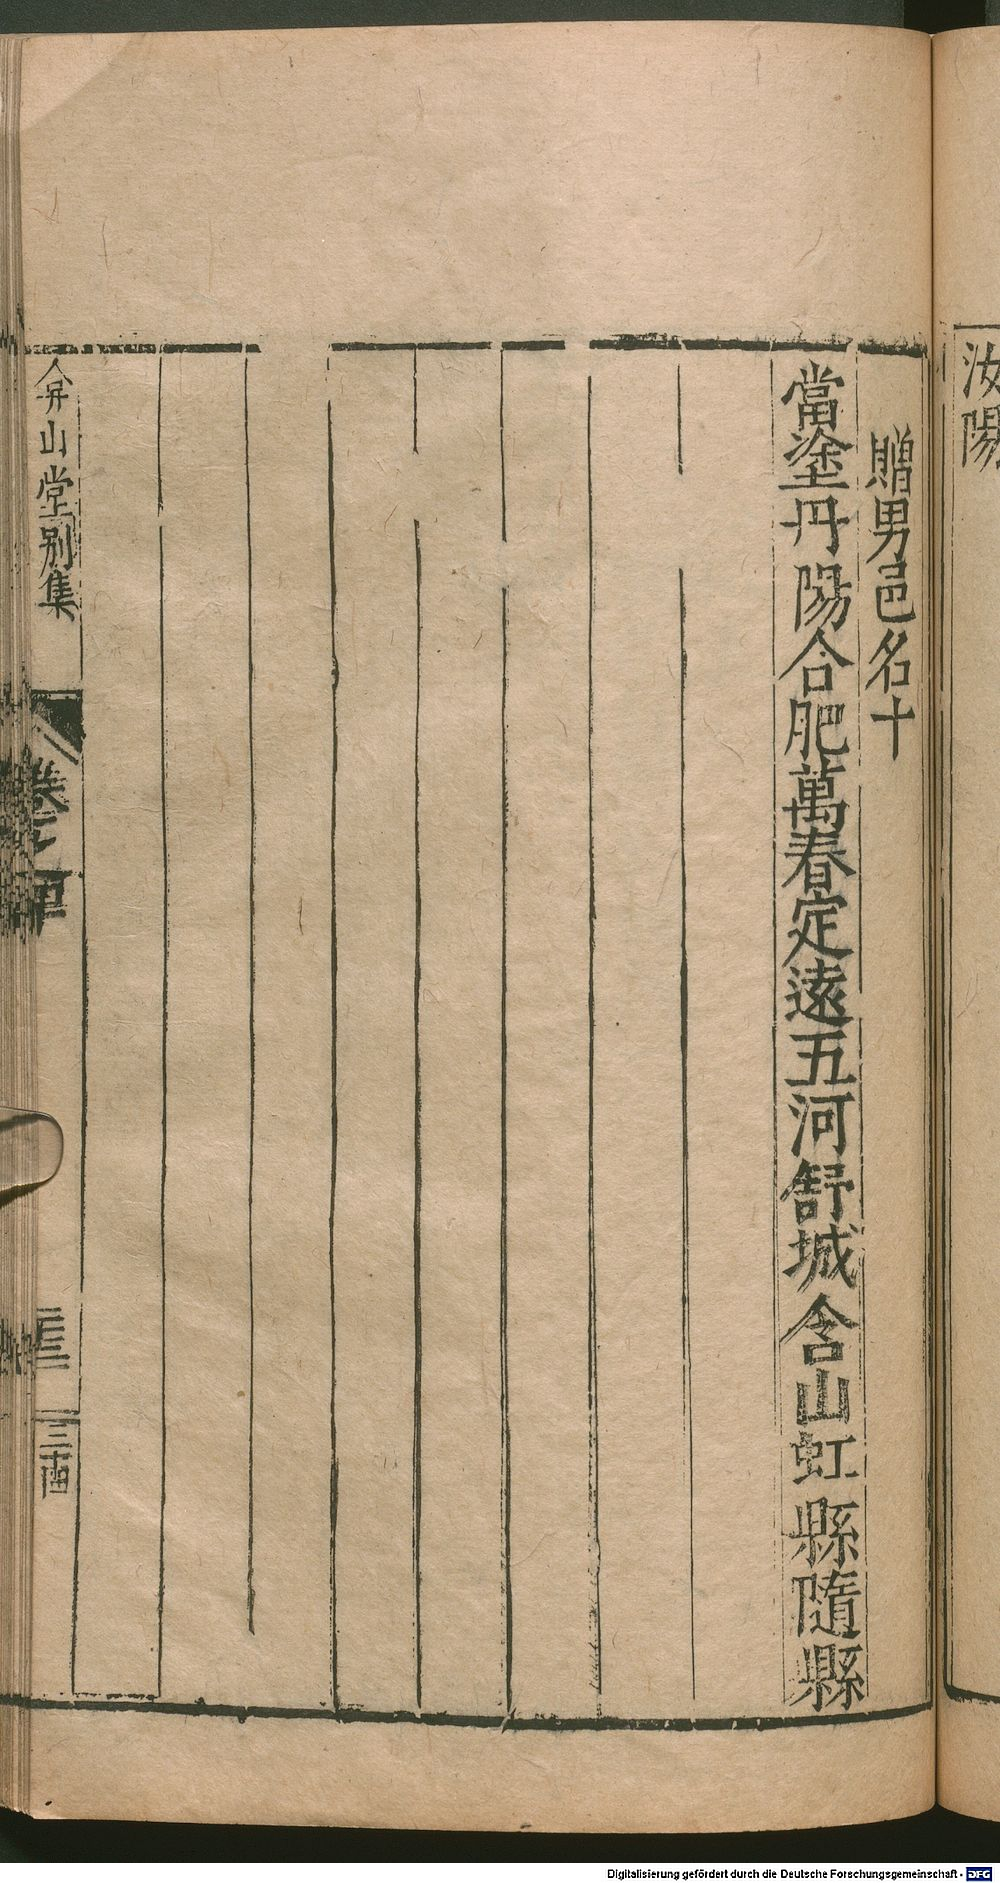 汝陽
贈男邑名十
當塗丹陽合肥萬春定遠五河舒城含山虹縣隨縣
弇山堂别集
卷
三十四
Digitalisierung gefördert durch die Deutsche Forschungsgemeinschaft - DFG